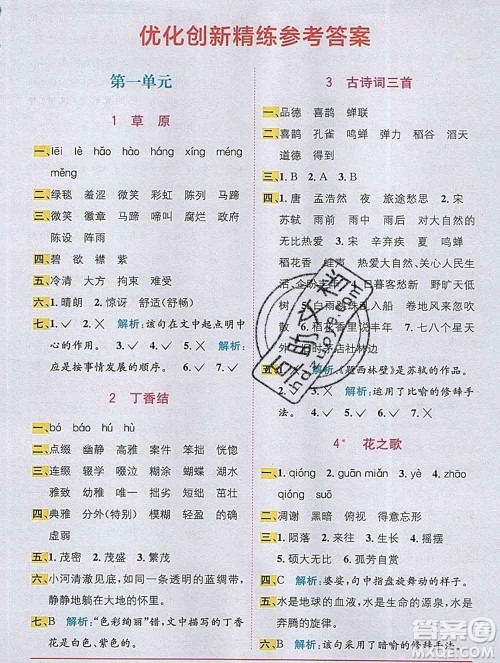 优化创新精练参考答案
第一单元
1 草 原
一、lēi lè hǎo hào háng xíng méng
měng
二、绿毯 羞涩 微笑 彩虹 陈列 马蹄
三、微笑 徽章 马蹄 啼叫 腐烂 政府
陈设 阵雨
四、碧 欲 襟 紫
五、冷清 大方 拘束 难受
六、1.晴朗 2.惊讶 舒适(舒畅)
七、1.✓ 2.✓ 3.✕ 解析:该句在文中起点明中
心的作用。 4.✓ 5.✓ 6.✓ 7.✕ 解析:
应是按事情发展的顺序。
2 丁香结
一、bó báo hú hū
二、点缀 幽静 高雅 案件 笨拙 恍惚
三、连缀 辍学 啜泣 糊涂 蝴蝶 幽雅
幼稚 优美
四、典雅 分外(特别) 模糊 赠送 愚笨
虚弱
五、1.茂密 2.茂盛 3.繁茂
六、小河清澈见底,如一条透明的蓝绸子,
静静地躺在大地的怀里。
七、B 解析:“色彩绚丽”错,文中描写的丁香
花是白色、紫色的。
3 古诗词三首
一、品德 喜鹊 蝉联
二、喜鹊 孔雀 鸣蝉 弹力 稻谷 滔天
道德 得到
三、1.B 2.A 3.B
四、1.唐 孟浩然 夜 旅途愁思 2.宋
苏轼 雨前 雨中 雨后 对大自然的
无比热爱 3.宋 辛弃疾 夏 鸣蝉
稻花香 蛙声 热爱大自然、关心人民
生活
树 5.白雨跳珠乱入船 卷地风来忽
吹散 6.稻花香里说丰年
旧时茅店社林边
《题西林壁》是苏轼的作品。
解析:运用了比喻的修辞手
法。
4* 花之歌
一、1.qióng 2.guān miǎn 3.yì 4.zhāo
qióng
二、凋谢 黑暗 俯视 得意忘形
三、1.吮吸 2.啜饮 3.生长 4.摇摆
5.硕大无比 6.孤芳自赏
四、C 解析:婆娑,句中指盘旋舞动的样子。
五、水是地球的血液,水是生命的源泉,水是
生命的希望。
六、B 解析:该句采用了暗喻的修辞手法。
答案圈
MXQE.COM